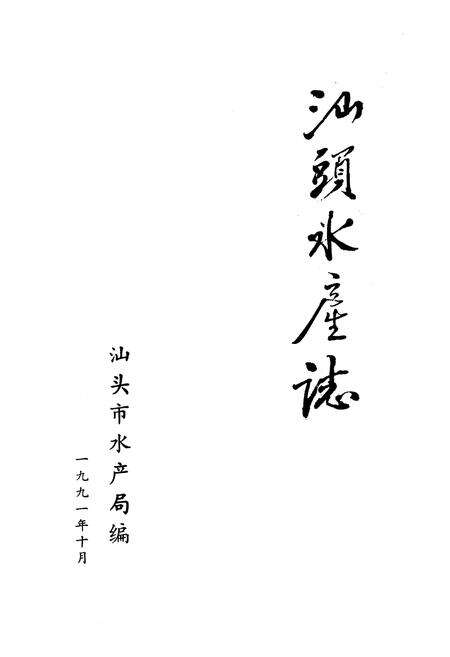 汕頭水產誌
汕头市水产局编
一九九一年十月